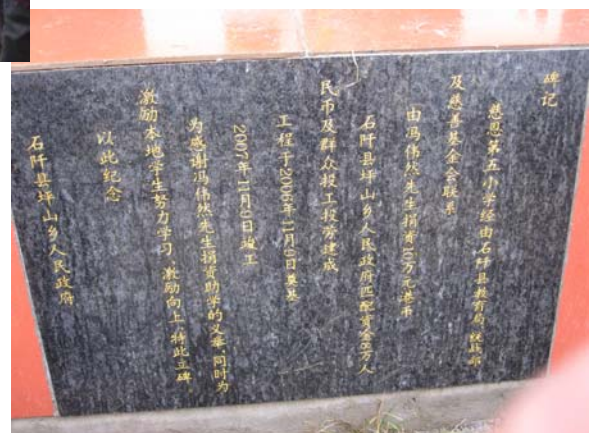 碑记
慈恩第五小学经由石阡县教育局 统战部
及慈善基金会联系
由冯伟然先生捐资10万元港币
石阡县坪山乡人民政府匹配资金 万人
民币及群众投工投劳建成
工程于2006年11月 日奠基
2007年11月 日竣工
为感谢冯伟然先生捐资助学的义举 同时为
激励本地学生努力学习 激励向上 特此立碑
以此纪念
石阡县坪山乡人民政府